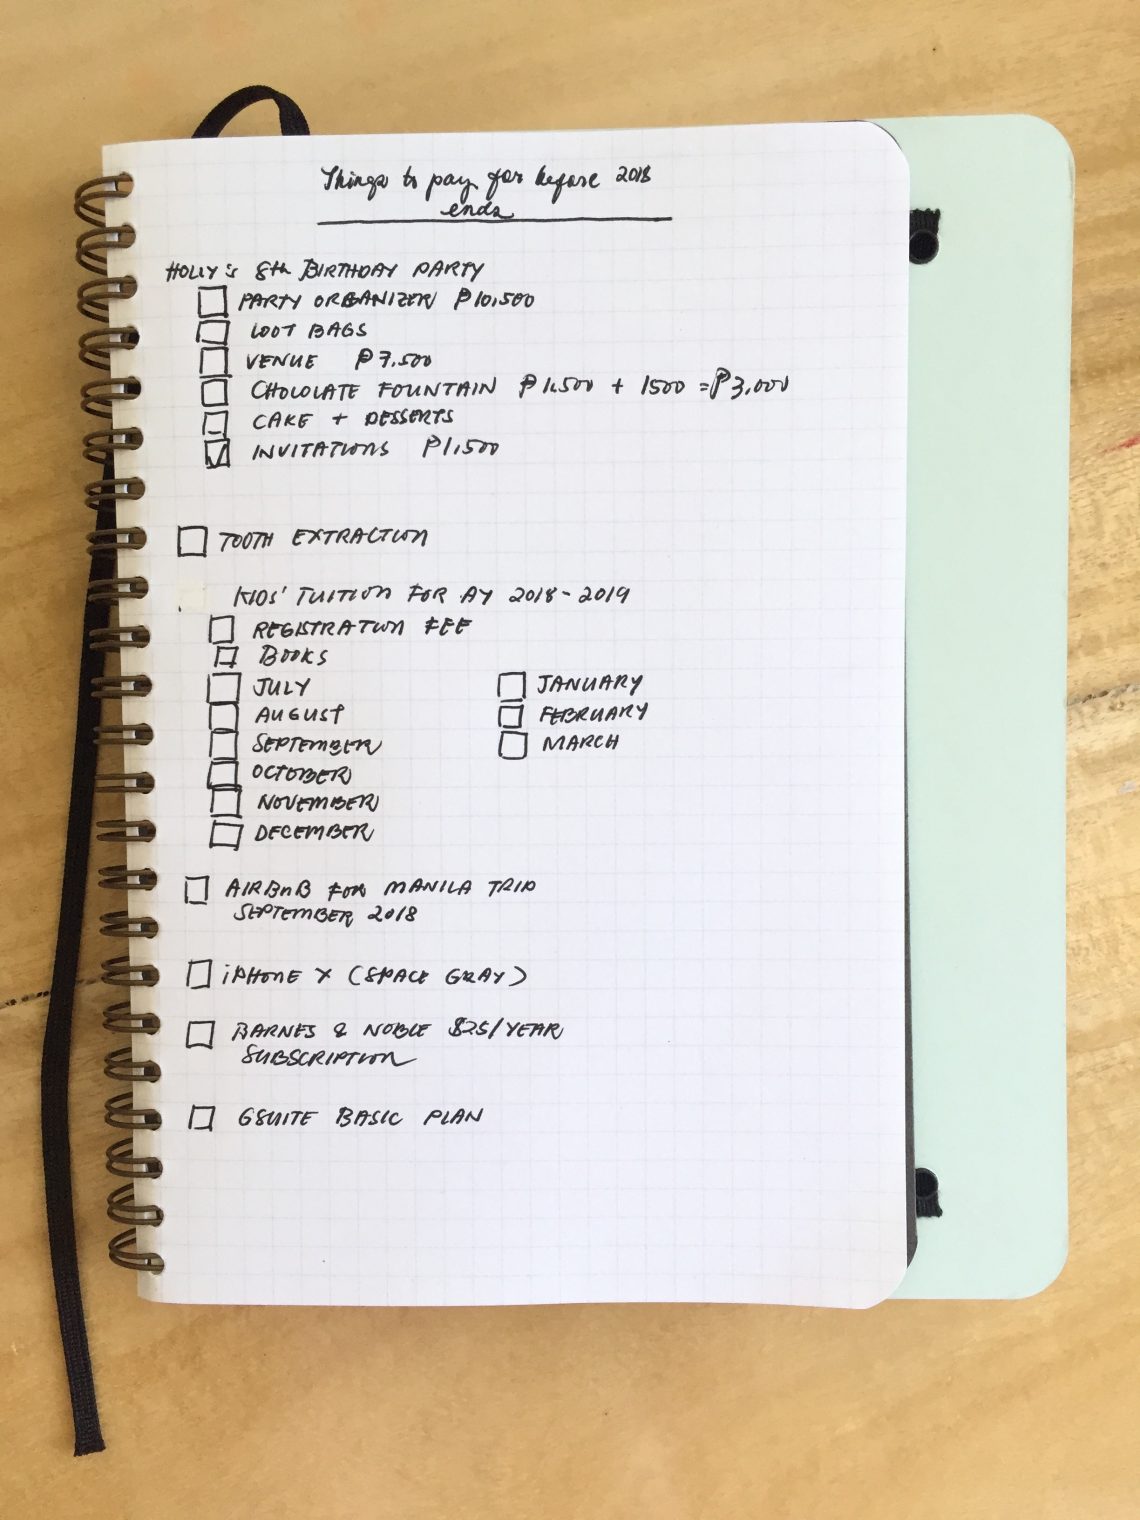 Things to pay for before 2018
ends
HOLLY'S 8th BIRTHDAY PARTY
PARTY ORGANIZER ₱10,500
LOOT BAGS
VENUE ₱7,500
CHOCOLATE FOUNTAIN ₱1,500 + 1500 = ₱3,000
CAKE + DESSERTS
INVITATIONS ₱1,500
TOOTH EXTRACTION
KIDS' TUITION FOR AY 2018-2019
REGISTRATION FEE
BOOKS
JULY
AUGUST
SEPTEMBER
OCTOBER
NOVEMBER
DECEMBER
JANUARY
FEBRUARY
MARCH
AIRBnB FOR MANILA TRIP
SEPTEMBER 2018
iPHONE X (SPACE GRAY)
BARNES & NOBLE $25/YEAR
SUBSCRIPTION
GSUITE BASIC PLAN